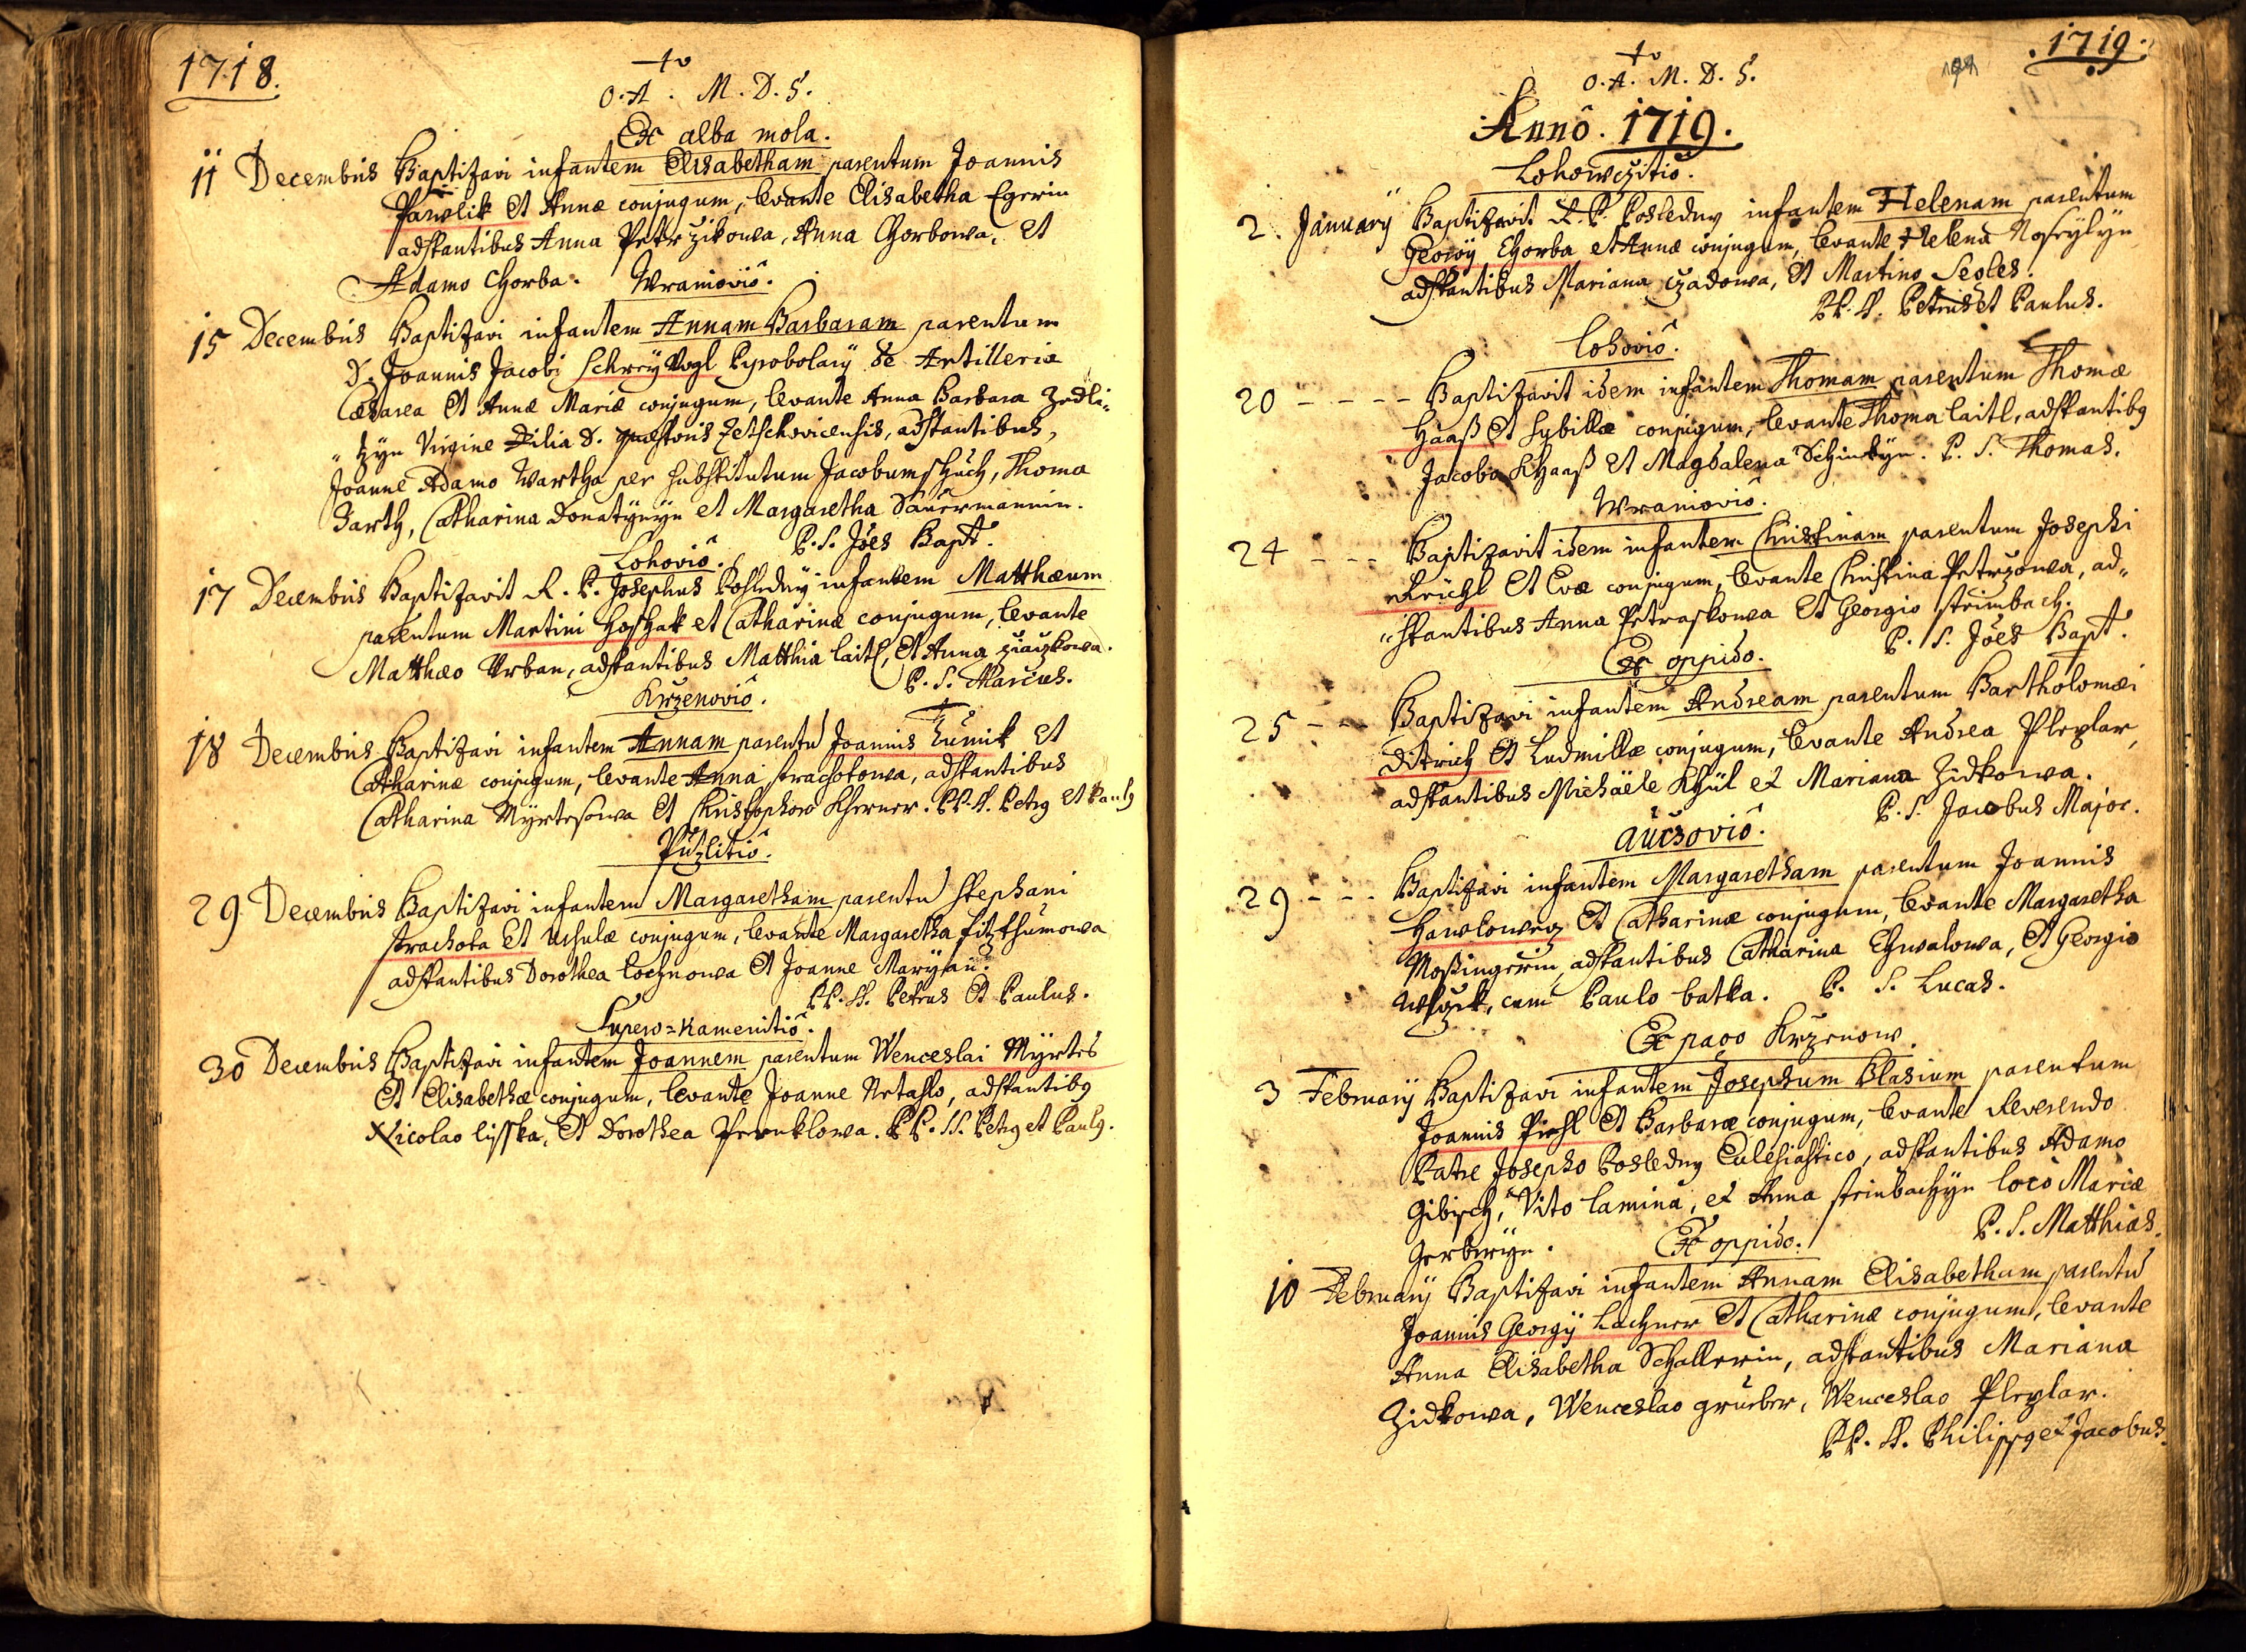 1718.
O. A. M. D. S.
Ex alba mola.
11 Decembris Baptizavi infantem Elisabetham parentum Joannis
Pawlik et Annæ conjugum, levante Elisabetha Egerin
adstantibus Anna Petrzikowa, Anna Chorbowa, et
Adamo Chorba. Wraniovio.
15 Decembris Baptizavi infantem Annam Barbaram parentum
D. Joannis Jacobi Schreÿ Vogl Pyrobolarÿ de Artilleria
Cæsarea et Annæ Mariæ conjugum, levante Anna Barbara Zedli-
tzÿn Virgine Filia D. quæstoris Zetschovicensis, adstantibus,
Joanne Adamo Wartha per substitutum Jacobum Schuch, Thoma
Barth, Catharina Donatÿnÿn et Margaretha Sauermannin.
Lohovio. P. S. Jões Bapt.
17 Decembris Baptizavit R. P. Josephus Posledny infantem Matthæum
parentum Martini Hoszak et Catharinæ conjugum, levante
Matthæo Urban, adstantibus Matthia laitl, et Anna
Krzenovio. P. S. Marcus.
18 Decembris Baptizavi infantem Annam parentu Joannis Tumik et
Catharinæ conjugum, levante Anna strachotowa, adstantibus
Catharina Myrtesowa et Christophoro Kherner. PP. SS. Petrg et Paulg
Putzlitio.
29 Decembris Baptizavi infantem Margaretham parentu Stephani
strachota et Ursulæ conjugum, levante Margaretha fitzthumowa
adstantibus Dorothea lochnowa et Joanne Marÿan.
PP. SS. Petrus et Paulus.
Super=Kamenitio.
30 Decembris Baptizavi infantem Joannem parentum Wenceslai Mÿrtes
et Elisabethæ conjugum, levante Joanne Netahlo, adstantibg
Nicolao lÿsska, et Dorothea Pernklowa. PP. SS. Petrg et Paulg.
1719.
O. A. M. D. S.
Annô. 1719.
Lohowczitio.
2. Januarÿ Baptizavit R. P. Posledny infantem Helenam parentum
Georgÿ Chorba et Annæ conjugum, levante Helena
adstantibus Mariana czadowa, et Martino Segles.
PP. SS. Petrus et Paulus.
Lohovio.
20 - - - - Baptizavit idem infantem Thomam parentum Thomæ
Haaß et Sybillæ conjugum, levante Thoma laitl, adstantibg
Jacobo Khaaß et Magdalena P. S. Thomas.
Wraniovio.
24 - - - Baptizavit idem infantem Christinam parentum Josephi
Reichl et Evæ conjugum, levante Christina Petrzowa, ad-
stantibus Anna Petraskowa et Georgio steinbach.
Ex oppido. P. S. Jões Bapt.
25 - - - Baptizavi infantem Andream parentum Bartholomæi
Ditrich et Ludmillæ conjugum, levante Andrea Pleylar,
adstantibus Michäele Khül et Mariana Zidkowa.
Auczovio. P. S. Jacobus Major.
29 - - - Baptizavi infantem Margaretham parentum Joannis
Hawlowez et Catharinæ conjugum, levante Margaretha
Moßingerin, adstantibus Catharina Chwalowa, et Georgio
cum Paulo batka. P. S. Lucas.
Ex pago Krzenow.
3 Februarÿ Baptizavi infantem Josephum Blasium parentum
Joannis Piehl et Barbaræ conjugum, levante Reverendo
Patre Josepho Posledny Eulesiastico, adstantibus Adamo
Gibisch, Vito lamina, et Anna steinbachÿn loco Mariæ
Gerberÿn. Ex oppido. P. S. Matthias.
10 Februarÿ Baptizavi infantem Annam Elisabetham parentu
Joannis Georgÿ Lachner et Catharinæ conjugum, levante
Anna Elisabetha Schallerin, adstantibus Mariana
Zidkowa, Wenceslao grueber, Wenceslao Pleylar.
PP. SS. Philippg et Jacobus.